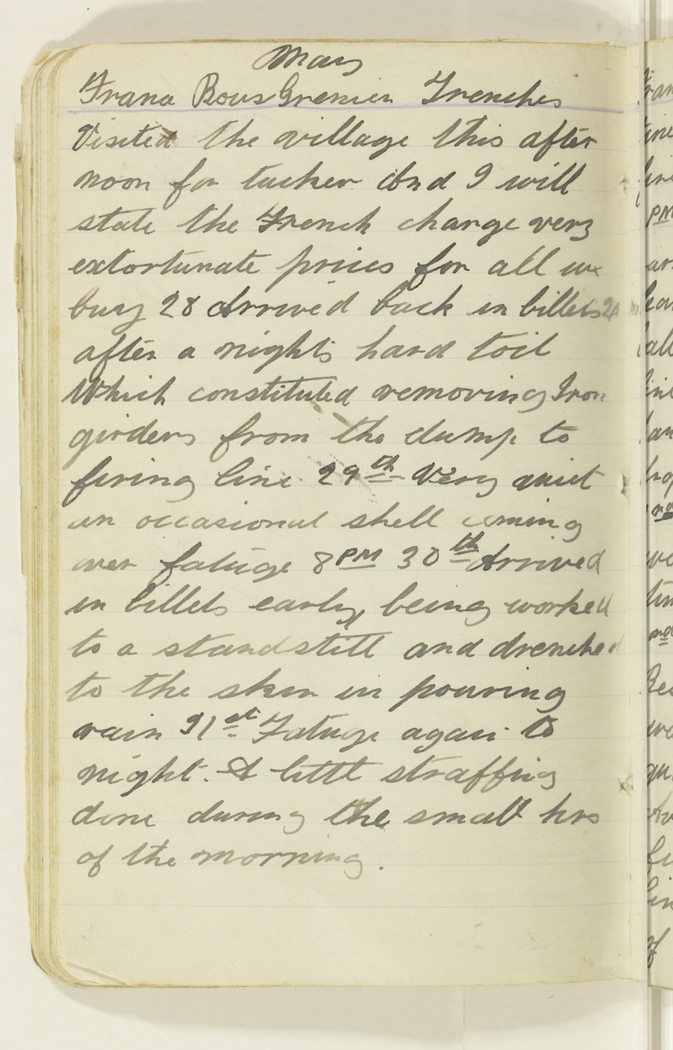 May
Frana Bous Grenier Trenches
Visited the village this after
noon for tucker And I will
state the French charge very
extortunate prices for all we
buy 28 Arrived back in billets
after a nights hard toil
Which constituted removing Iron
girders from the dump to
firing line 29th Very quiet
an occasional shell coming
over fatuge 8 PM 30th Arrived
in billets early, being worked
to a standstill and drenched
to the skin in pouring
rain 31st Fatuge again to
night. A little straffing
done during the small hrs
of the morning.